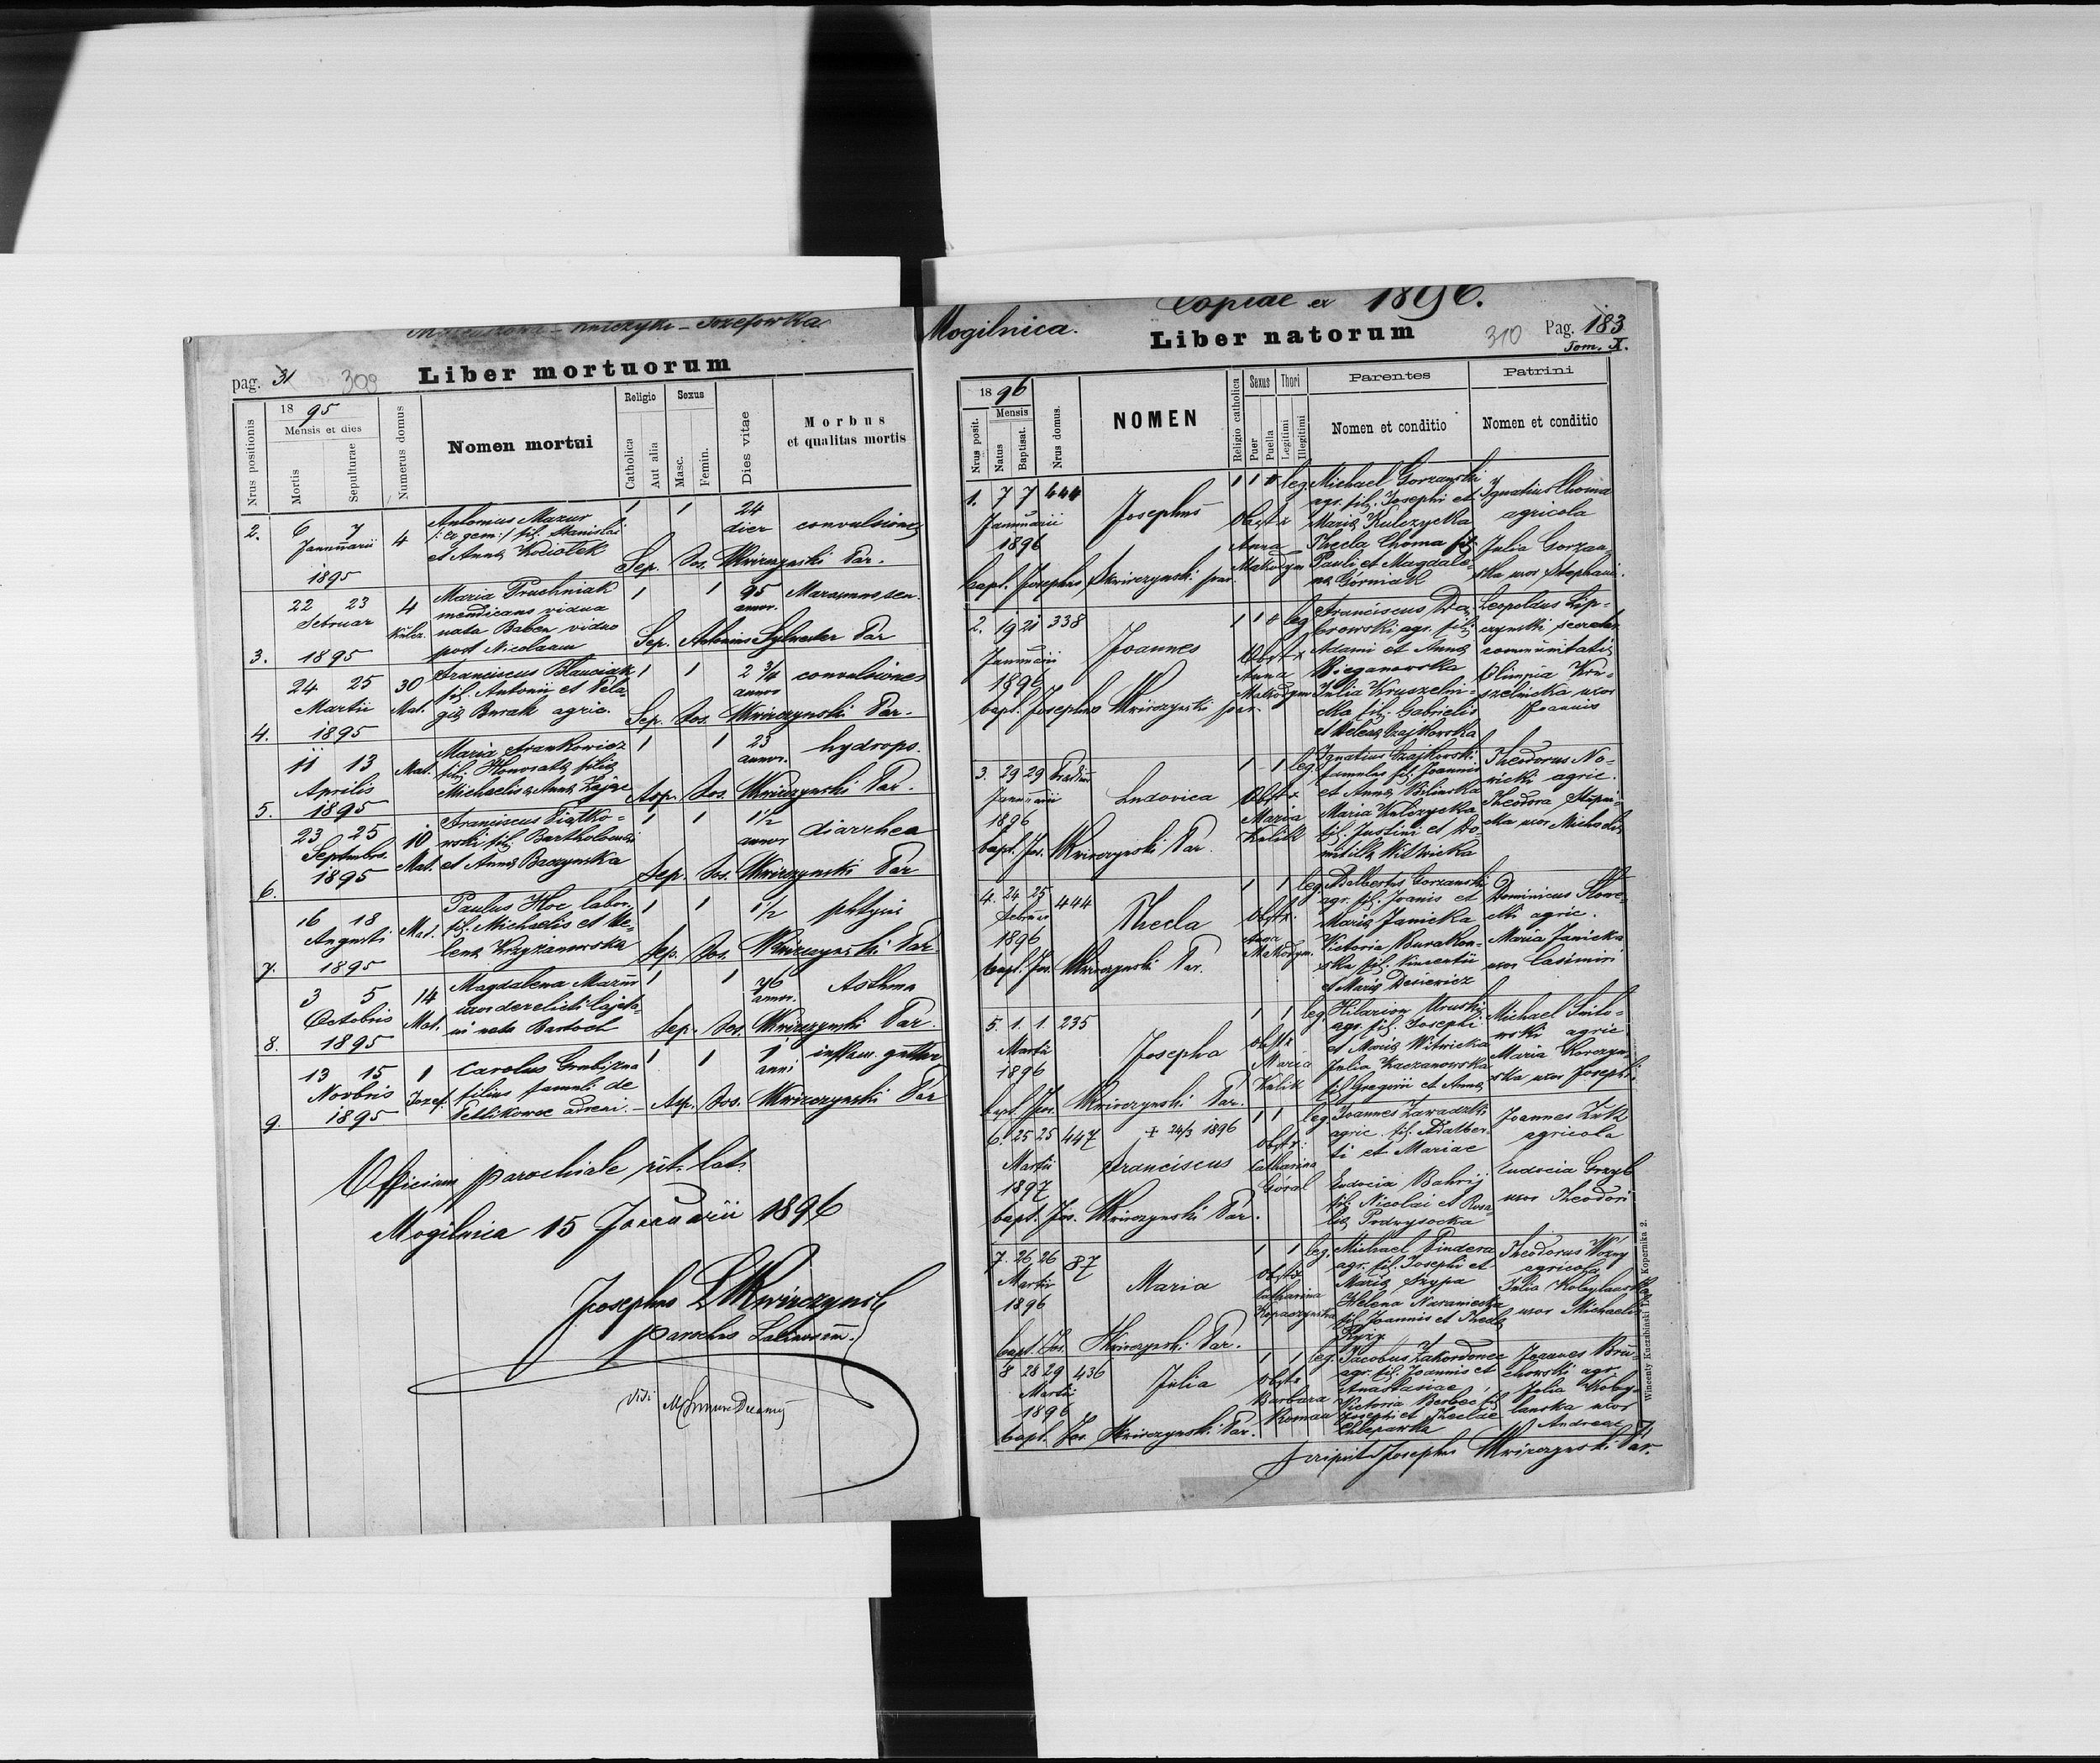 Józefówka
pag. 31 309
Liber mortuorum
Nrus positionis
18 95
Mensis et dies
Mortis
Sepulturae
Numerus domus
Nomen mortui
Religio
Catholica
Aut alia
Sexus
Masc.
Femin.
Dies vitae
Morbus
et qualitas mortis
2. 6 7 4 Antonius Mazur 1 1 24
Januarii fil. Stanislai dier convulsiones
et Annae Kociołek
1895 Sep. Jos. Skwirczynski Par.
22 23 4 Maria Pruchniak 1 1 95 Marasmus sen.
Februar mendicans vidua annor.
nata Baben vidua
3. 1895 post Nicolaum Sep. Antonius Sylwester Par
24 25 30 Franciscus 1 1 2 3/4 convulsiones
Martii Mat. fil. Antonii et Pela annor
giae Burak agric. Sep. Jos. Skwirczynski Par.
4. 1895
11 13 Mat. Maria Frankowicz 1 1 23 hydrops.
Aprilis fil. Honoratae filiae annor.
5. 1895 Michaelis Annae Zając Sep. Jos. Skwirczynski Par.
23 25 10 Franciscus Piątko- 1 1 1 1/2 diarrhea
Septembr. wski fil. Bartholomaei annor
6. 1895 Mat. et Annae Baczynska Sep. Jos. Skwirczynski Par
16 18 Mat. Paulus Hoc labor. 1 1 1 1/2
Augusti fil. Michaelis et He-
7. 1895 lenae Krzyżanowska Sep. Jos. Skwirczynski Par
3 5 14 Magdalena Mazur 1 1 76 Asthma
Octobris Mat. uxor derelicti Cajeta- annor.
8. 1895 ni nata Bartoch Sep. Jos. Skwirczynski Par.
13 15 1 Carolus 1 1 1 inflam. guttur
Novbris Jozef. filius famuli de anni
9. 1895 Petlikowce Sep. Jos. Skwirczynski Par
Officium parochiale rit. lat.
Mogilnica 15 Januarii 1896
Josephus Skwirczynski
parochus Latinorum.
Vidi
Copiae ex 1896.
Mogilnica.
Liber natorum
310 Pag. 183
Tom. X.
Nrus posit.
18 96
Mensis
Natus
Baptisat.
Nrus domus.
NOMEN
Religio catholica
Sexus
Puer
Puella
Thori
Legitimi
Illegitimi
Parentes
Nomen et conditio
Patrini
Nomen et conditio
1. 7 7 444 Josephus 1 1 0 leg Michael Gorzanski Ignatius Choma
Januarii agr. fil. Josephi et agricola
1896 Obst Mariae Kulczycka
Anna Thecla Choma fil. Julia Gorzan-
bapt. Josephus Skwirczynski par. Pauli et Magdale- ska uxor Stephani.
nae Górniak
2. 19 21 338 Joannes 1 1 0 leg Franciscus Dą- Leopoldus Lip-
Januarii browski agr. fil. czynski secretar.
1896 Obst Adami et Annae communitatis
Anna Bieganowska Olimpia Kru-
bapt. Josephus Skwirczynski par. Julia Kruszelni- szelnicka uxor
cka fil. Gabrielis Joannis
et Helenae Czajkowska
3. 29 29 Ludovica 1 1 leg. Ignatius Czajkowski Theodorus No-
Januarii famulus fil. Joannis wicki agric.
1896 Obst et Annae Bilinska Theodora
Maria Maria Kulczycka uxor Michaelis
bapt. Jos. Skwirczynski Par. Kulik fil. Justini et Do-
mitillae Witwicka
4. 24 25 444 Thecla 1 1 leg. Adalbertus Gorzanski Dominicus
Februar agr. fil. Joanis et agric.
1896 Obst. Mariae Janicka Maria Janicka
Anna Victoria Burakow- uxor Casimiri
bapt. Jos. Skwirczynski Par. ska fil. Vincentii
et Mariae
5. 1. 1. 235 Josepha 1 1 leg Hilarion Michael
Martii agr. fil. Josephi agric.
1896 Obst et Mariae Witwicka Maria Korczyn-
Maria Julia Kaczanowska ska uxor Josephi
bapt. Jos. Skwirczynski Par. Kulik fil. Gregorii et Annae
6. 25 25 447 + 24/3 1896 1 1 leg Joannes Zawadzki Joannes Żuk
Martii Franciscus Obst agric. fil. Adalber- agricola
1897 Catharina ti et Mariae Eudocia Grzyb
Góral Eudocia Bahrij uxor Theodori
bapt. Jos. Skwirczynski Par. fil. Nicolai et Rosa-
liae Podwysocka
7. 26 26 87 Maria 1 1 leg. Michael Pindera Theodorus Woźny
Martii Obst agr. fil. Josephi et agricola
1896 Catharina Mariae Szypa Julia
Kopaczynska Helena Naraniecka uxor Michaelis
bapt. Jos. Skwirczynski Par. fil. Joannis et Theclae
Ryży
8 28 29 436 Julia 1 1 leg. Jacobus Zakordonec Joannes
Martii Obst agr. fil. Joannis et agr.
1896 Barbara Anastasiae Julia Koby-
Roman Victoria Berbec fil. lanska uxor
bapt. Jos. Skwirczynski Par. Josephi et Theclae Andreae
Chlepawka
Scripsit Josephus Skwirczynski Par.
Wincenty Kuczabiński Lwów, Kopernika 2.